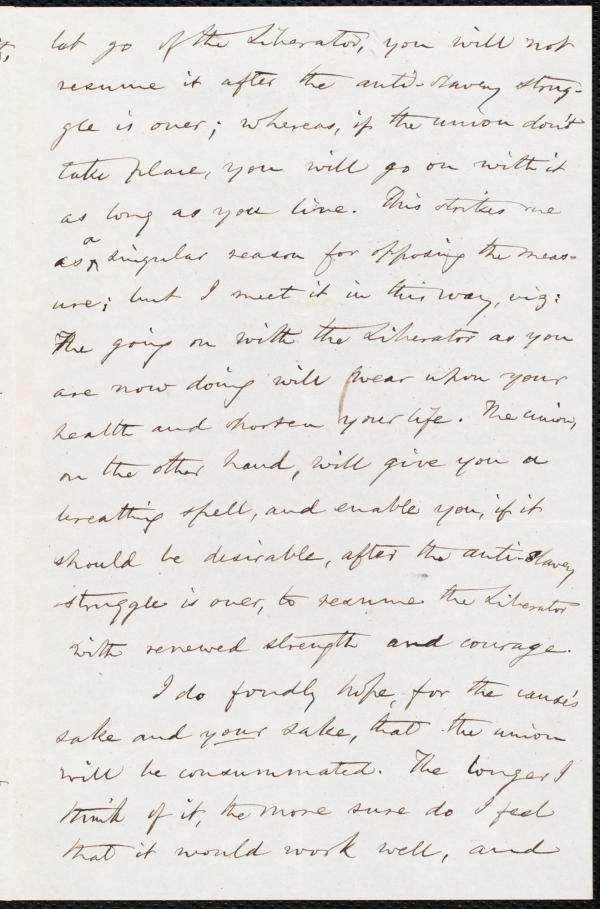 let go of the Liberator, you will not
resume it after the anti-slavery strug-
gle is over; whereas, if the union don't
take place, you will go on with it
as long as you live. This strikes me
as a singular reason for opposing the meas-
ure; but I meet it in this way, viz:
The going on with the Liberator as you
are now doing will wear upon your
health and shorten your life. The union,
on the other hand, will give you a
breathing spell, and enable you, if it
should be desirable, after the anti-slavery
struggle is over, to resume the Liberator
with renewed strength and courage.
I do fondly hope, for the cause's
sake and your sake, that the union
will be consummated. The longer I
think of it, the more sure do I feel
that it would work well, and